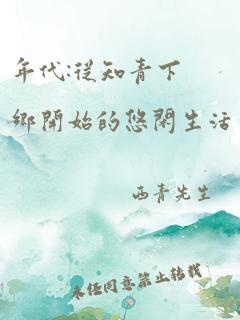 年代:從知青下
鄉開始的悠閑生活
西青先生
未經同意禁止轉載